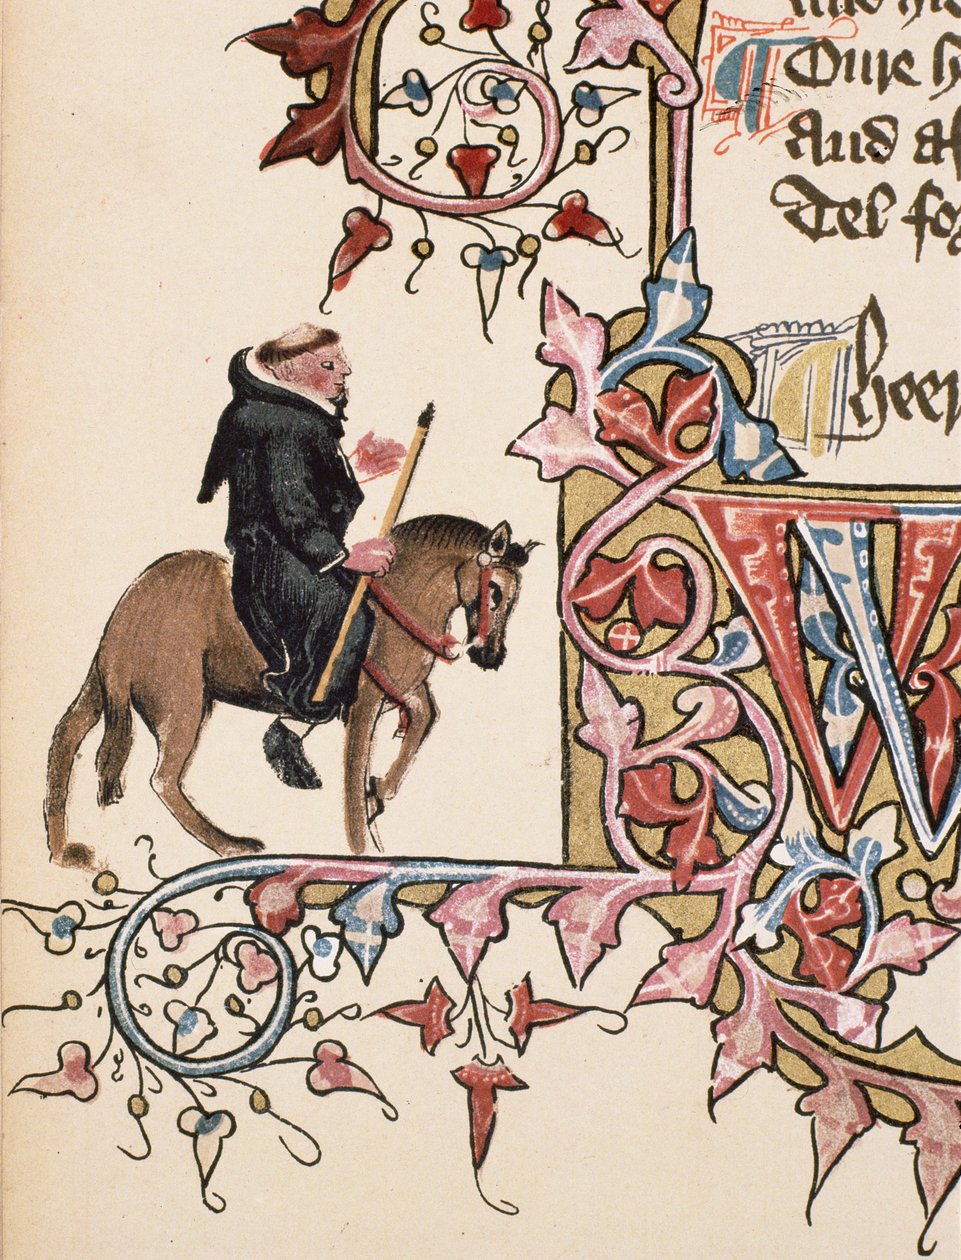 Oure h
And af
Tel for
Heer
W